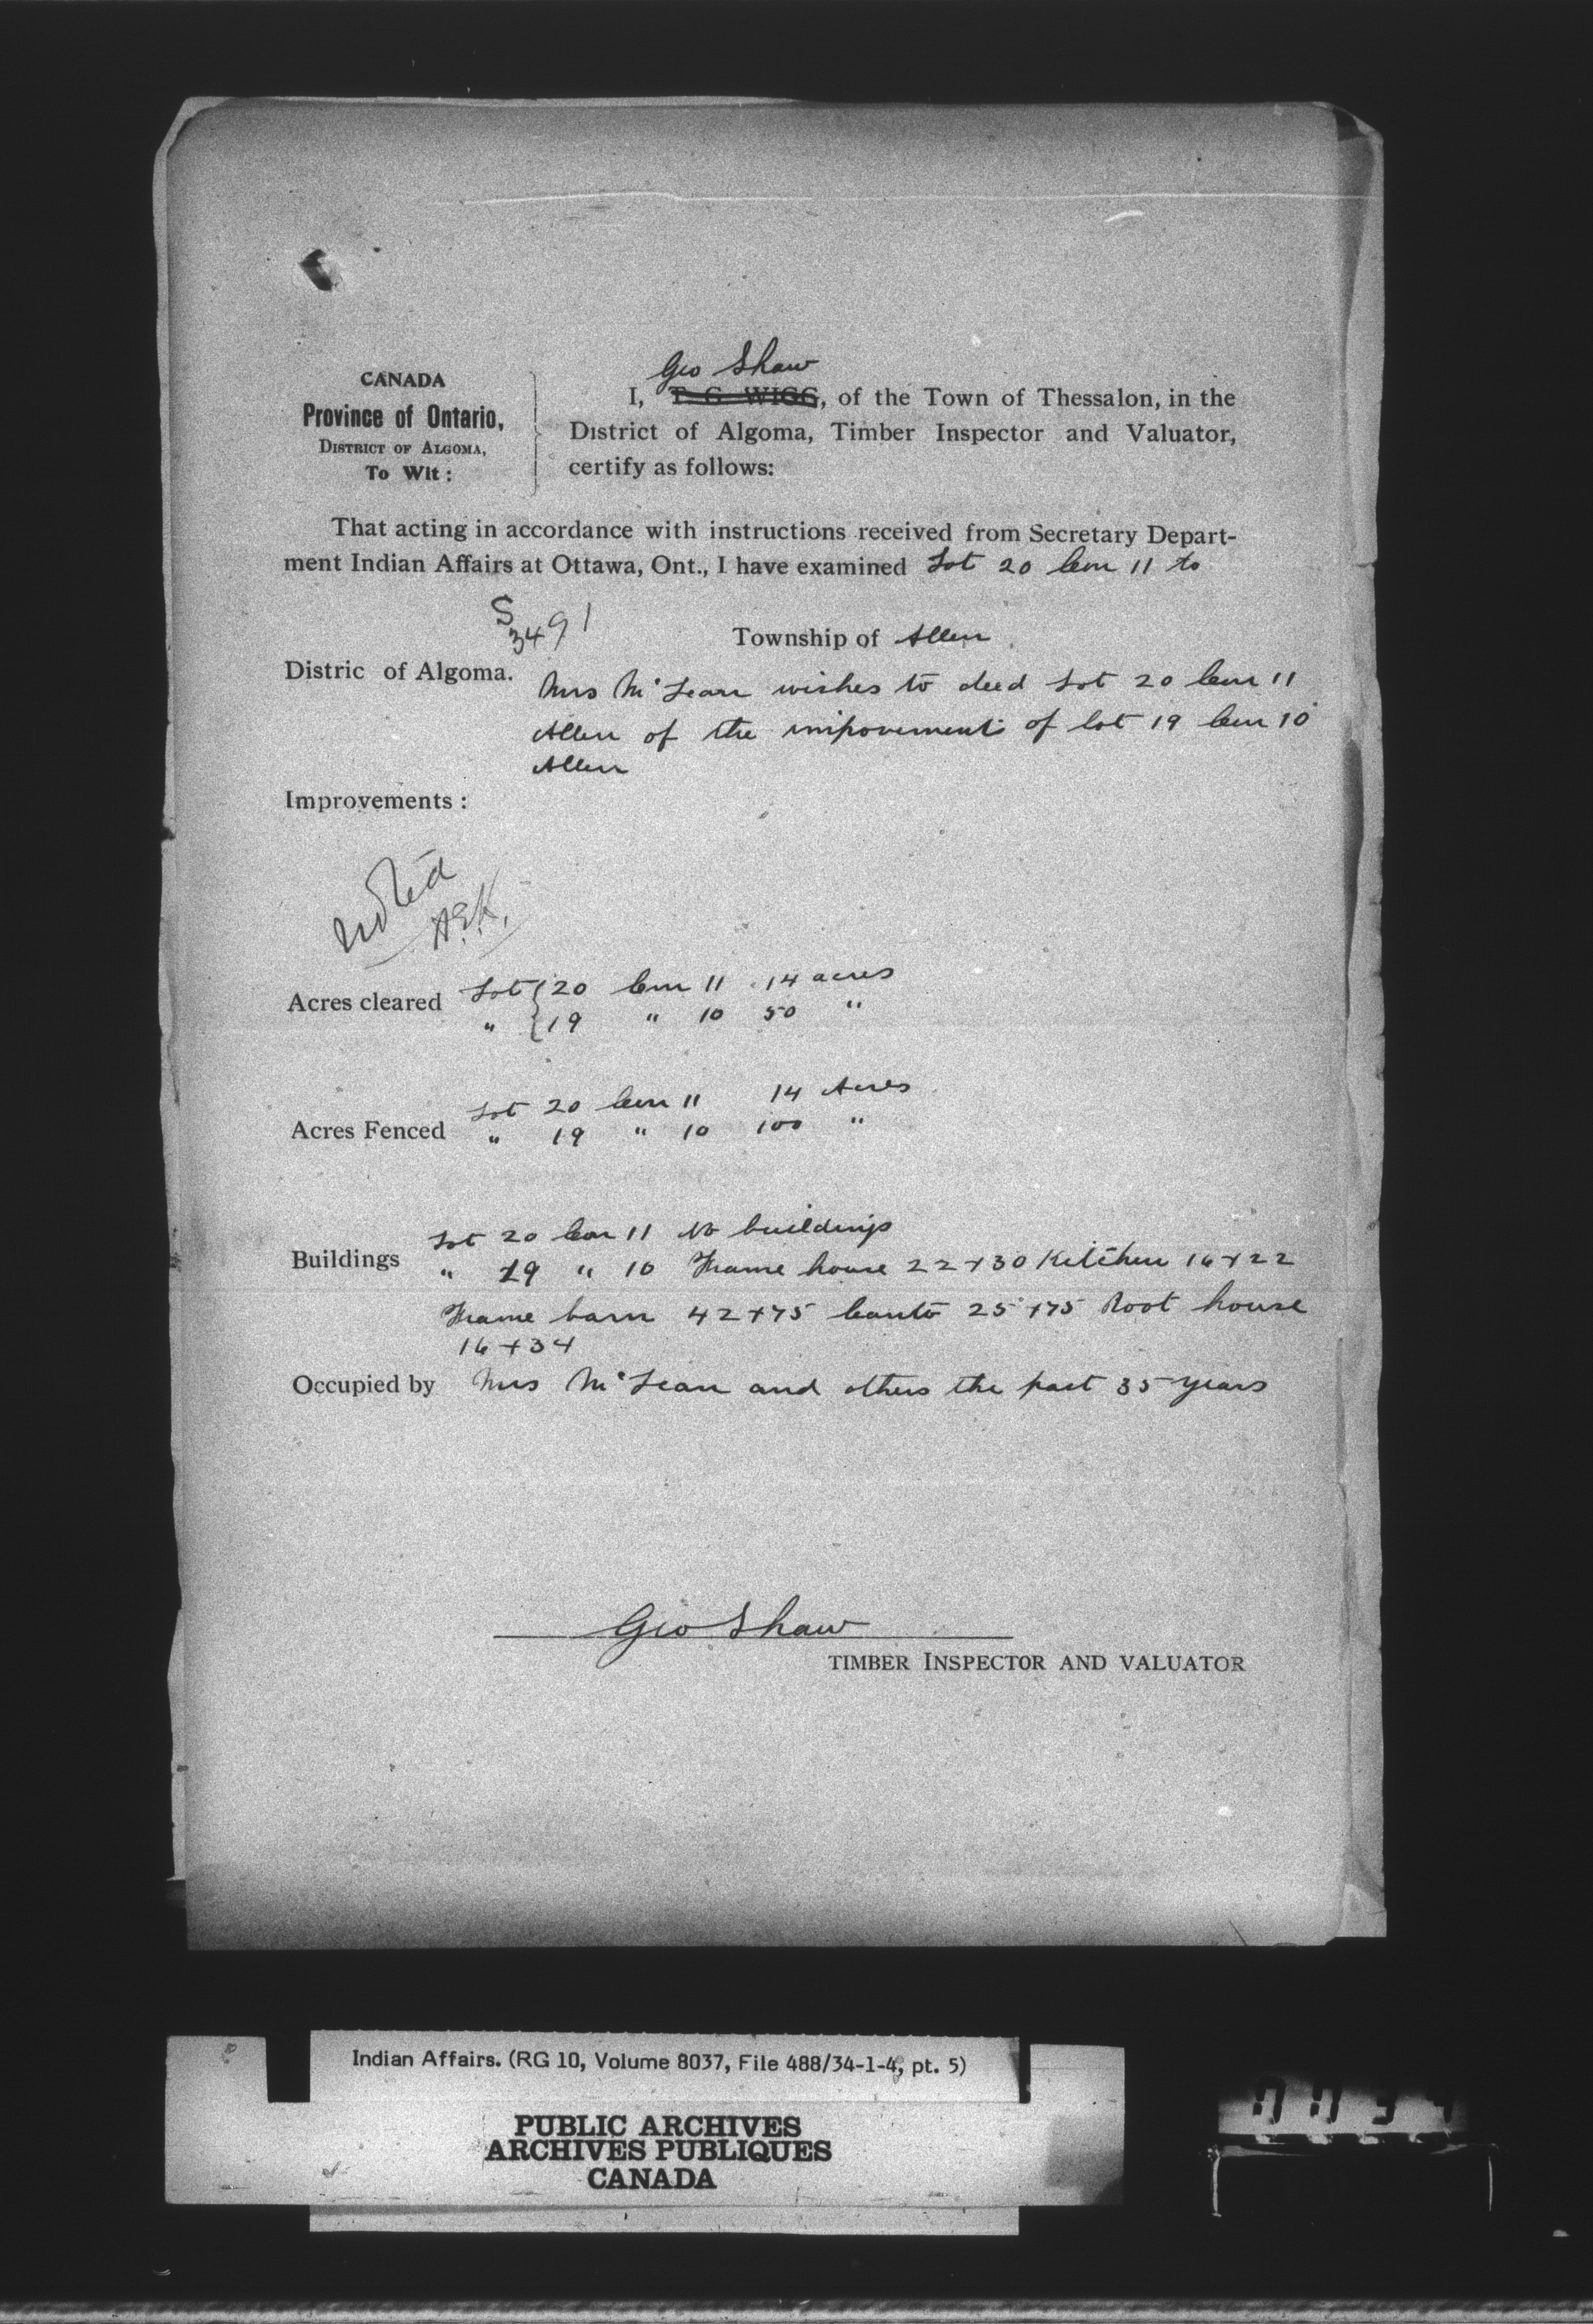 CANADA
Province of Ontario,
DISTRICT OF ALGOMA,
To Wit:
Geo Shaw
I, T. G. WIGG, of the Town of Thessalon, in the
District of Algoma, Timber Inspector and Valuator,
certify as follows:
That acting in accordance with instructions received from Secretary Depart-
ment Indian Affairs at Ottawa, Ont., I have examined Lot 20 Con 11 to
S
3491
Township of Allen
Distric of Algoma.
Mrs McLean wishes to deed Lot 20 Con 11
Allen of the improvements of lot 19 Con 10
Allen
Improvements:
noted
Acres cleared Lot 20 Con 11 14 acres
" 19 " 10 50 "
Acres Fenced Lot 20 Con 11 14 Acres
" 19 " 10 100 "
Buildings Lot 20 Con 11 No buildings
" 19 " 10 Frame house 22+30 Kitchen 16+22
Frame barn 42+75 leanto 25+75 Root house
16+34
Occupied by Mrs McLean and others the past 35 years
Geo Shaw
TIMBER INSPECTOR AND VALUATOR
Indian Affairs. (RG 10, Volume 8037, File 488/34-1-4, pt. 5)
PUBLIC ARCHIVES
ARCHIVES PUBLIQUES
CANADA